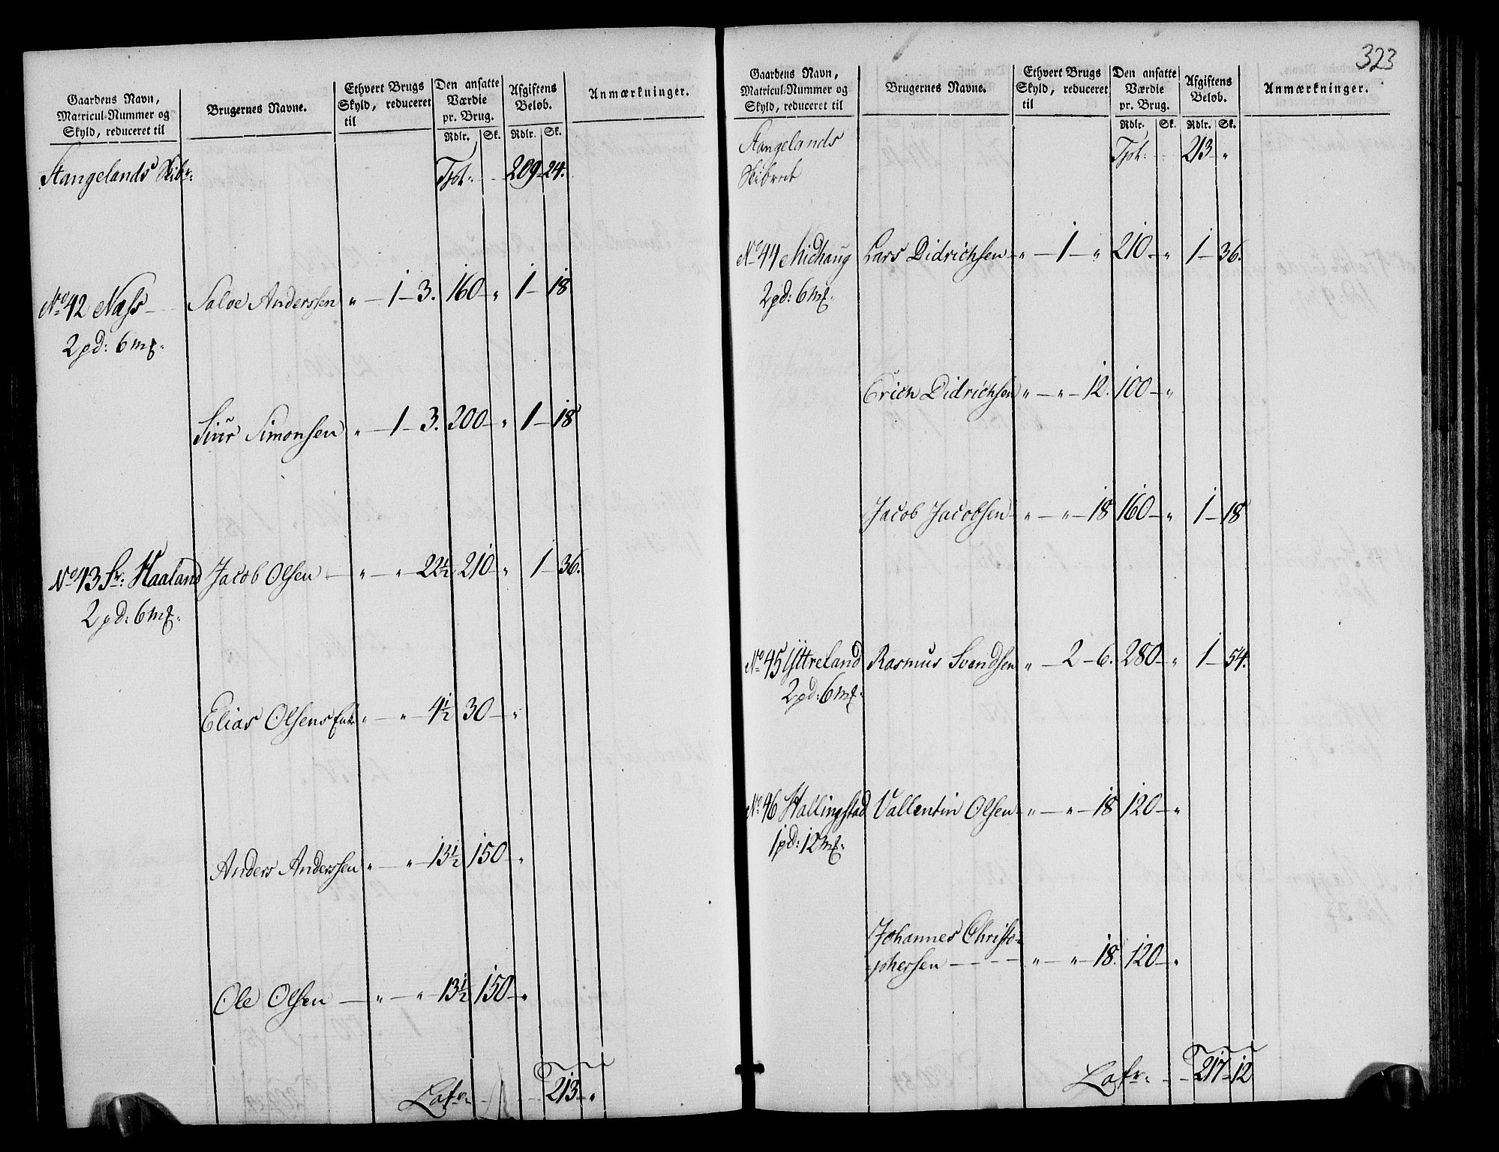 Gaardens Navn,
Matricul-Nummer og
Skyld, reduceret til
Brugernes Navne.
Ethvert Brugs
Skyld, reduceret
til
Den ansatte
Værdie
pr. Brug.
Rdlr. Sk.
Afgiftens
Beløb.
Rdlr. Sk.
Anmærkninger.
Stangelands Skibr: Tpt: 209 24.
No 42 Næss Salve Anderssen " 1 3. 160 " 1 18
2 pd: 6 mk
Siur Simonsen " 1 3. 200 " 1 18
No 43 Fr: Haaland Jacob Olsen " " 22½ 210 " 1 36.
2 pd: 6 mk
Elias Olsens Enke " " 4½ 30 "
Anders Anderssen " " 13½ 150 "
Ole Olsen " " 13½ 150 "
Lafr: 213 "
323
Gaardens Navn,
Matricul-Nummer og
Skyld, reduceret til
Brugernes Navne.
Ethvert Brugs
Skyld, reduceret
til
Den ansatte
Værdie
pr. Brug.
Rdlr. Sk.
Afgiftens
Beløb.
Rdlr. Sk.
Anmærkninger.
Stangelands Tpt: 213 "
Skibrede
No 44 Midhaug Lars Didrichsen " 1 " 210 " 1 36.
2 pd: 6 mk
Erich Didrichsen " " 12. 100 "
Jacob Jacobsen " " 18 160 " 1 18
No 45 Yttreland Rasmus Svendsen " 2 6. 280 " 1 54.
2 pd: 6 mk
No 46 Hallingstad Vallentin Olsen " " 18 120 "
1 pd: 12 mk
Johannes Christo-
phersen " " 18. 120 "
Lafr: 217 12